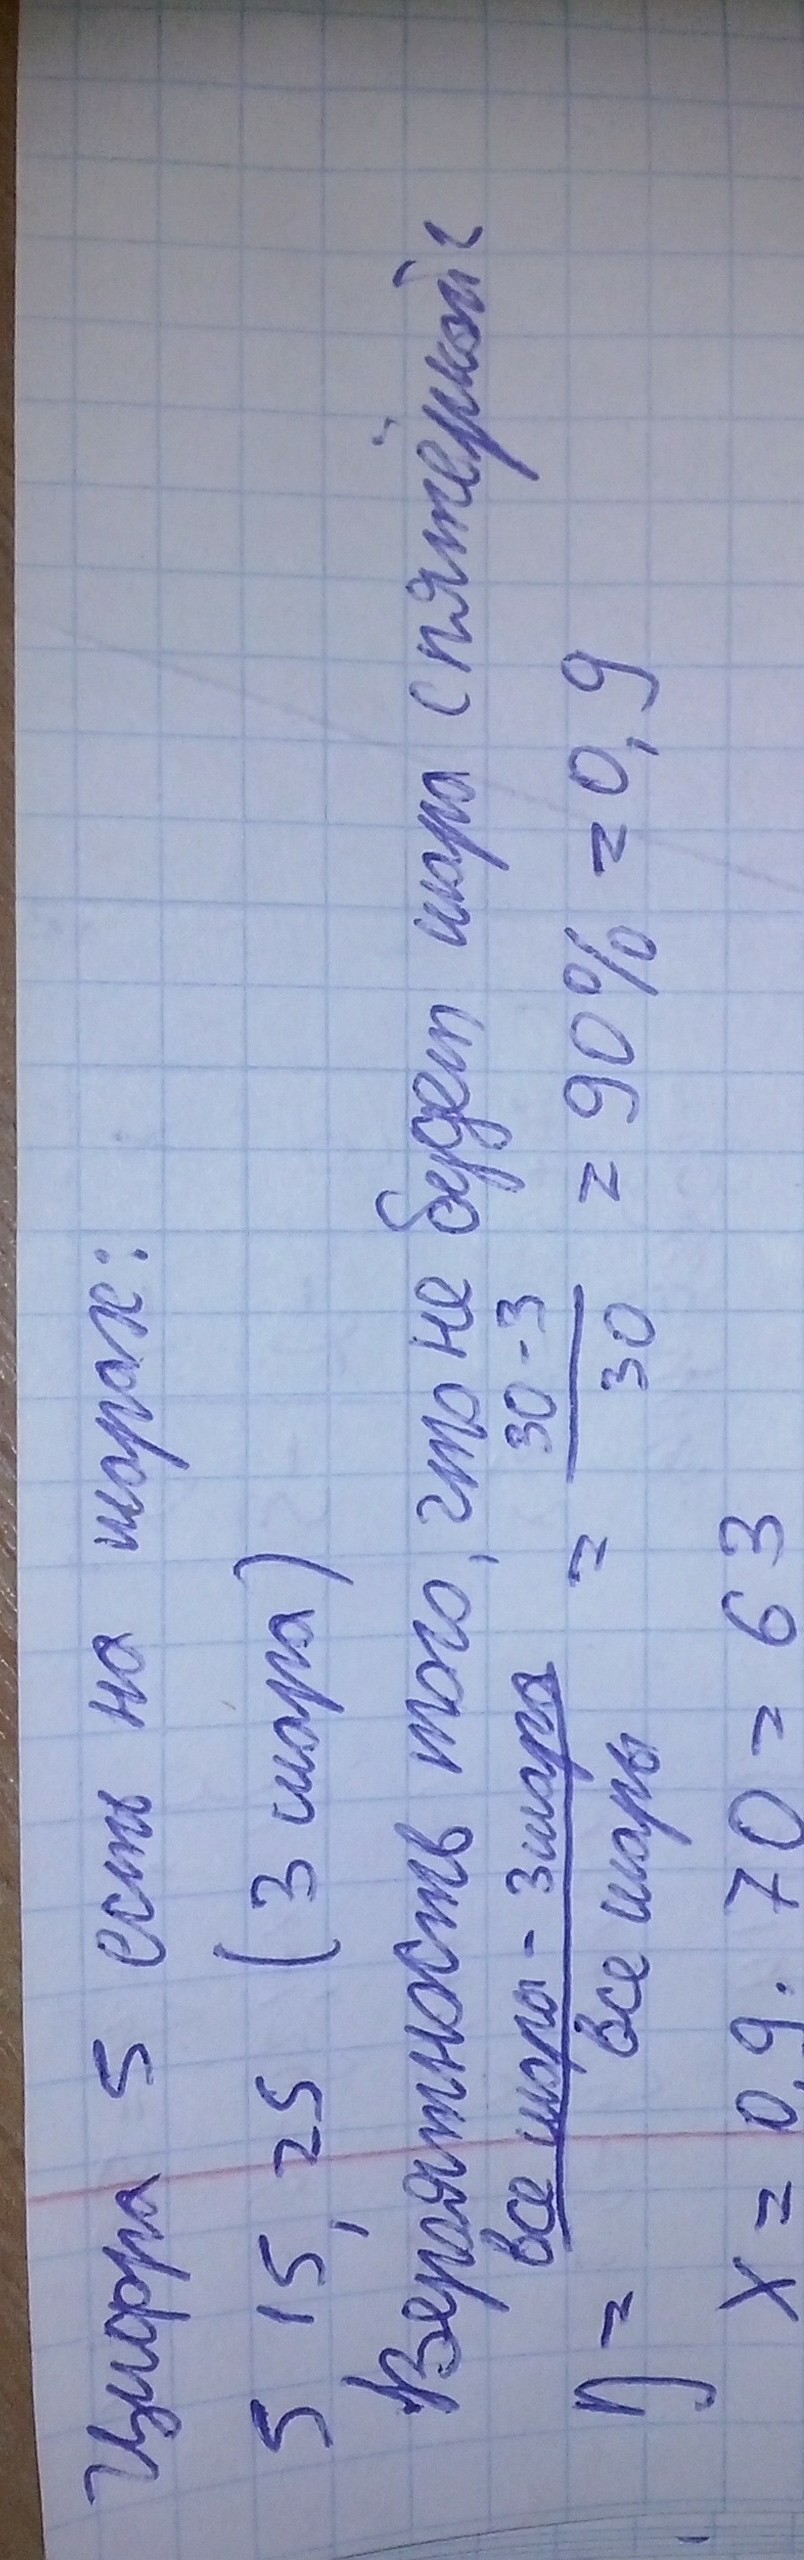 Цифра 5 есть на шарах:
5 15, 25 (3 шара)
Вероятность того, что не будет шара с пятёркой:
η = все шары - 3 шара / все шары = 30 - 3 / 30 = 90% = 0,9
x = 0,9 · 70 = 63